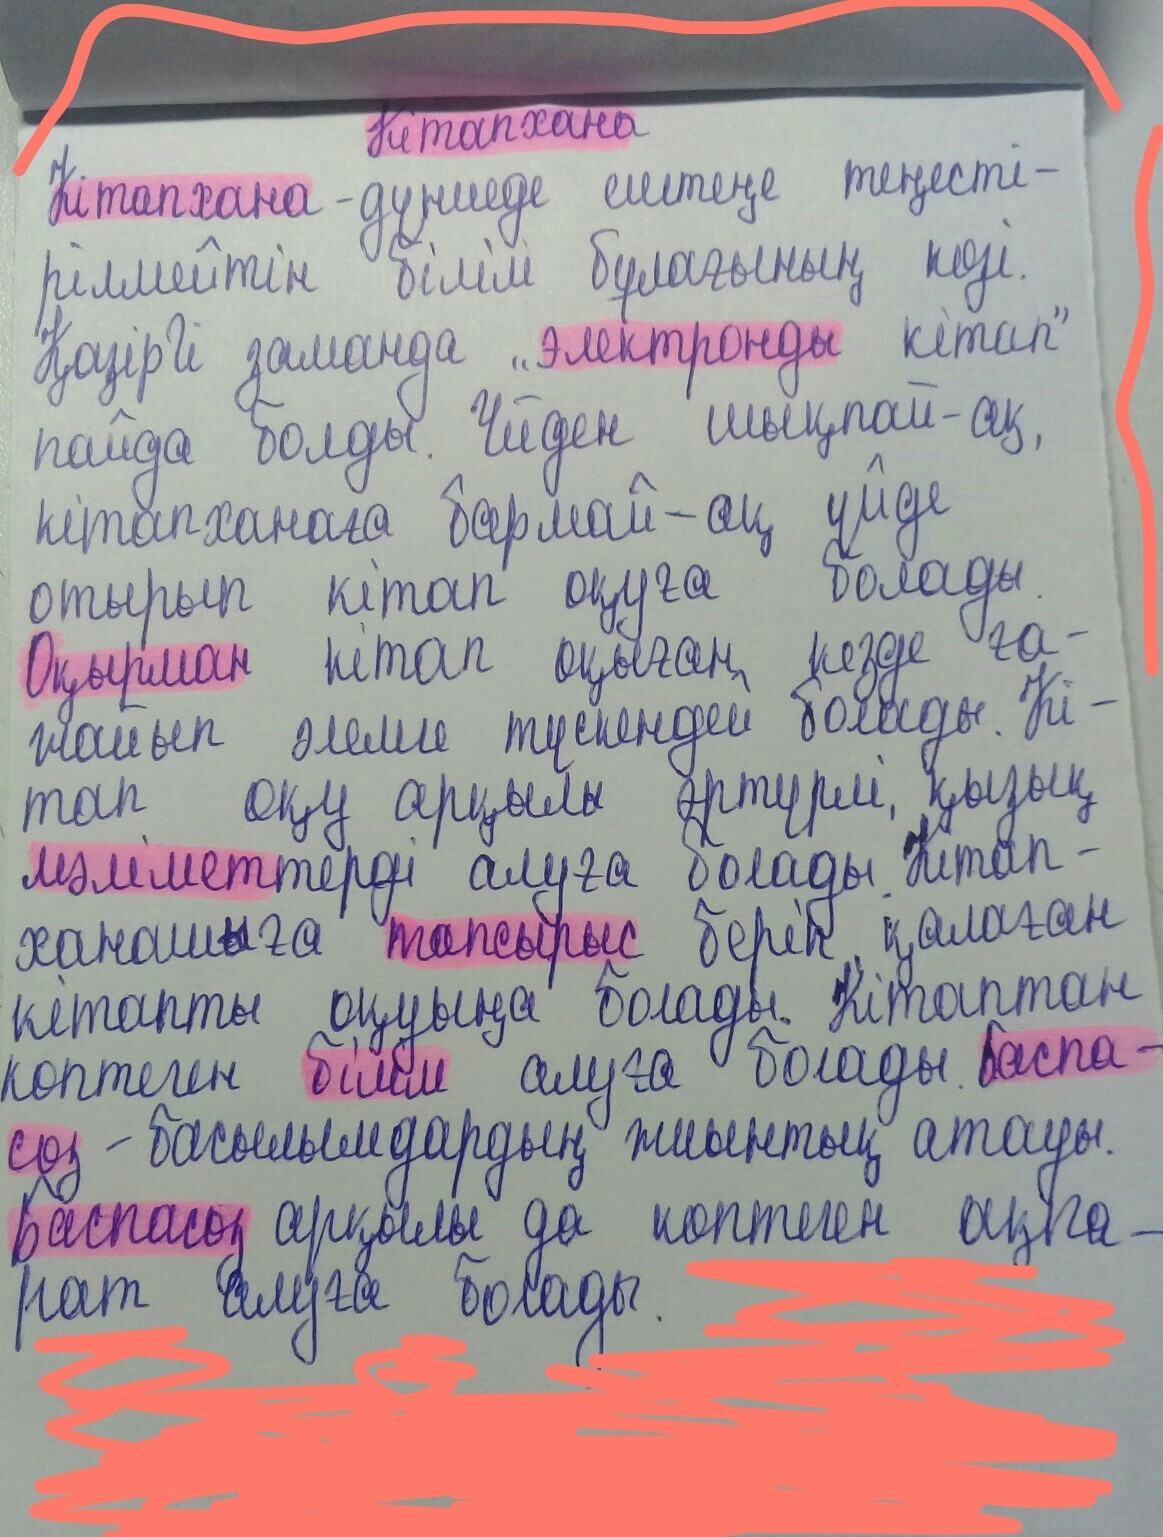 Кітапхана
Кітапхана - дүниеде ештеңе теңесті-
рілмейтін білім бұлағының көзі.
Қазіргі заманда „электронды кітап"
пайда болды. Үйден шықпай-ақ,
кітапханаға бармай-ақ үйде
отырып кітап оқуға болады.
Оқырман кітап оқыған кезде ға-
жайып әлемге түскендей болады. Кі-
тап оқу арқылы әртүрлі, қызық
мәліметтерді алуға болады. Кітап-
ханашыға тапсырыс беріп, қалаған
кітапты оқуыңа болады. Кітаптан
көптеген білім алуға болады. Баспа-
сөз - басылымдардың жиынтық атауы.
Баспасөз арқылы да көптеген ақпа-
рат алуға болады.